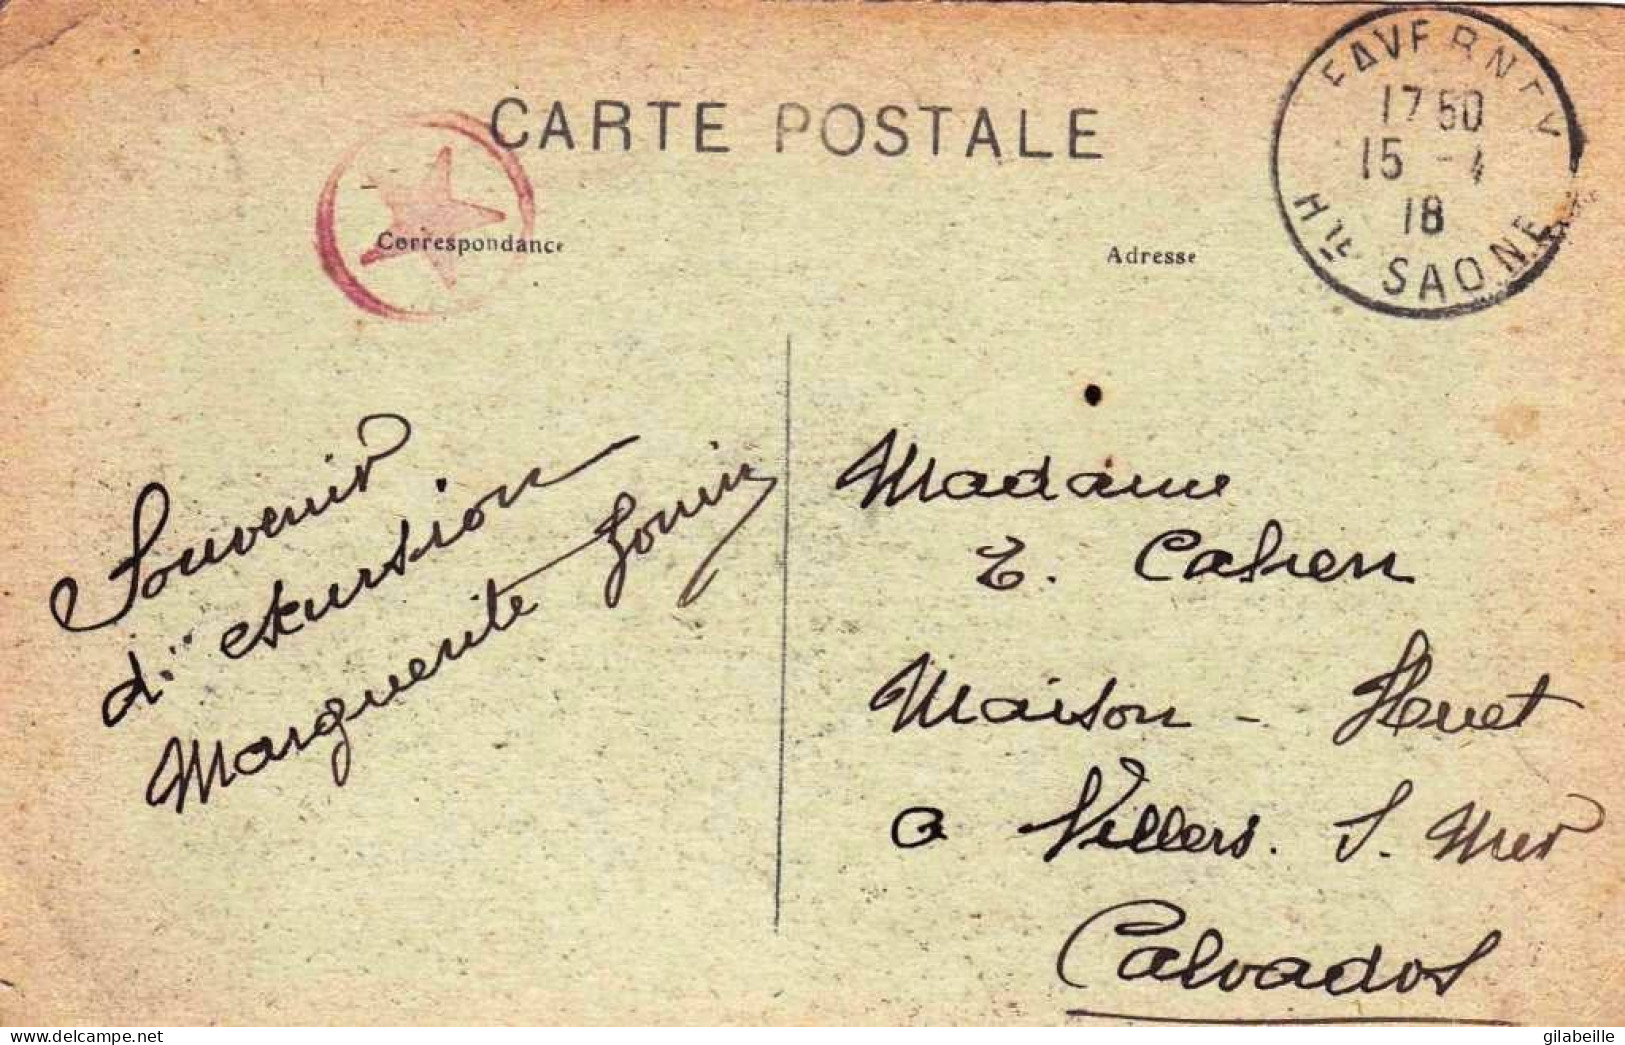 CARTE POSTALE
Correspondance
Adresse
FAVERNEY
17 50
15 - 4
18
Hte SAONE
Souvenir
d'exkursion
Marguerite
Madame
E. Cahen
Maison - Huet
a Villers. S. Mer
Calvados
https://www.delcampe.net
gilabeille